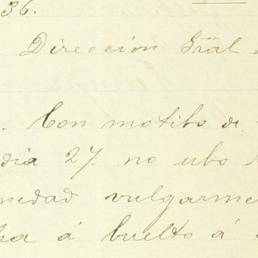 36.
Dirección Gral
. Con motibo de
dia 27 no ubo
medad vulgarme
a á buelto á